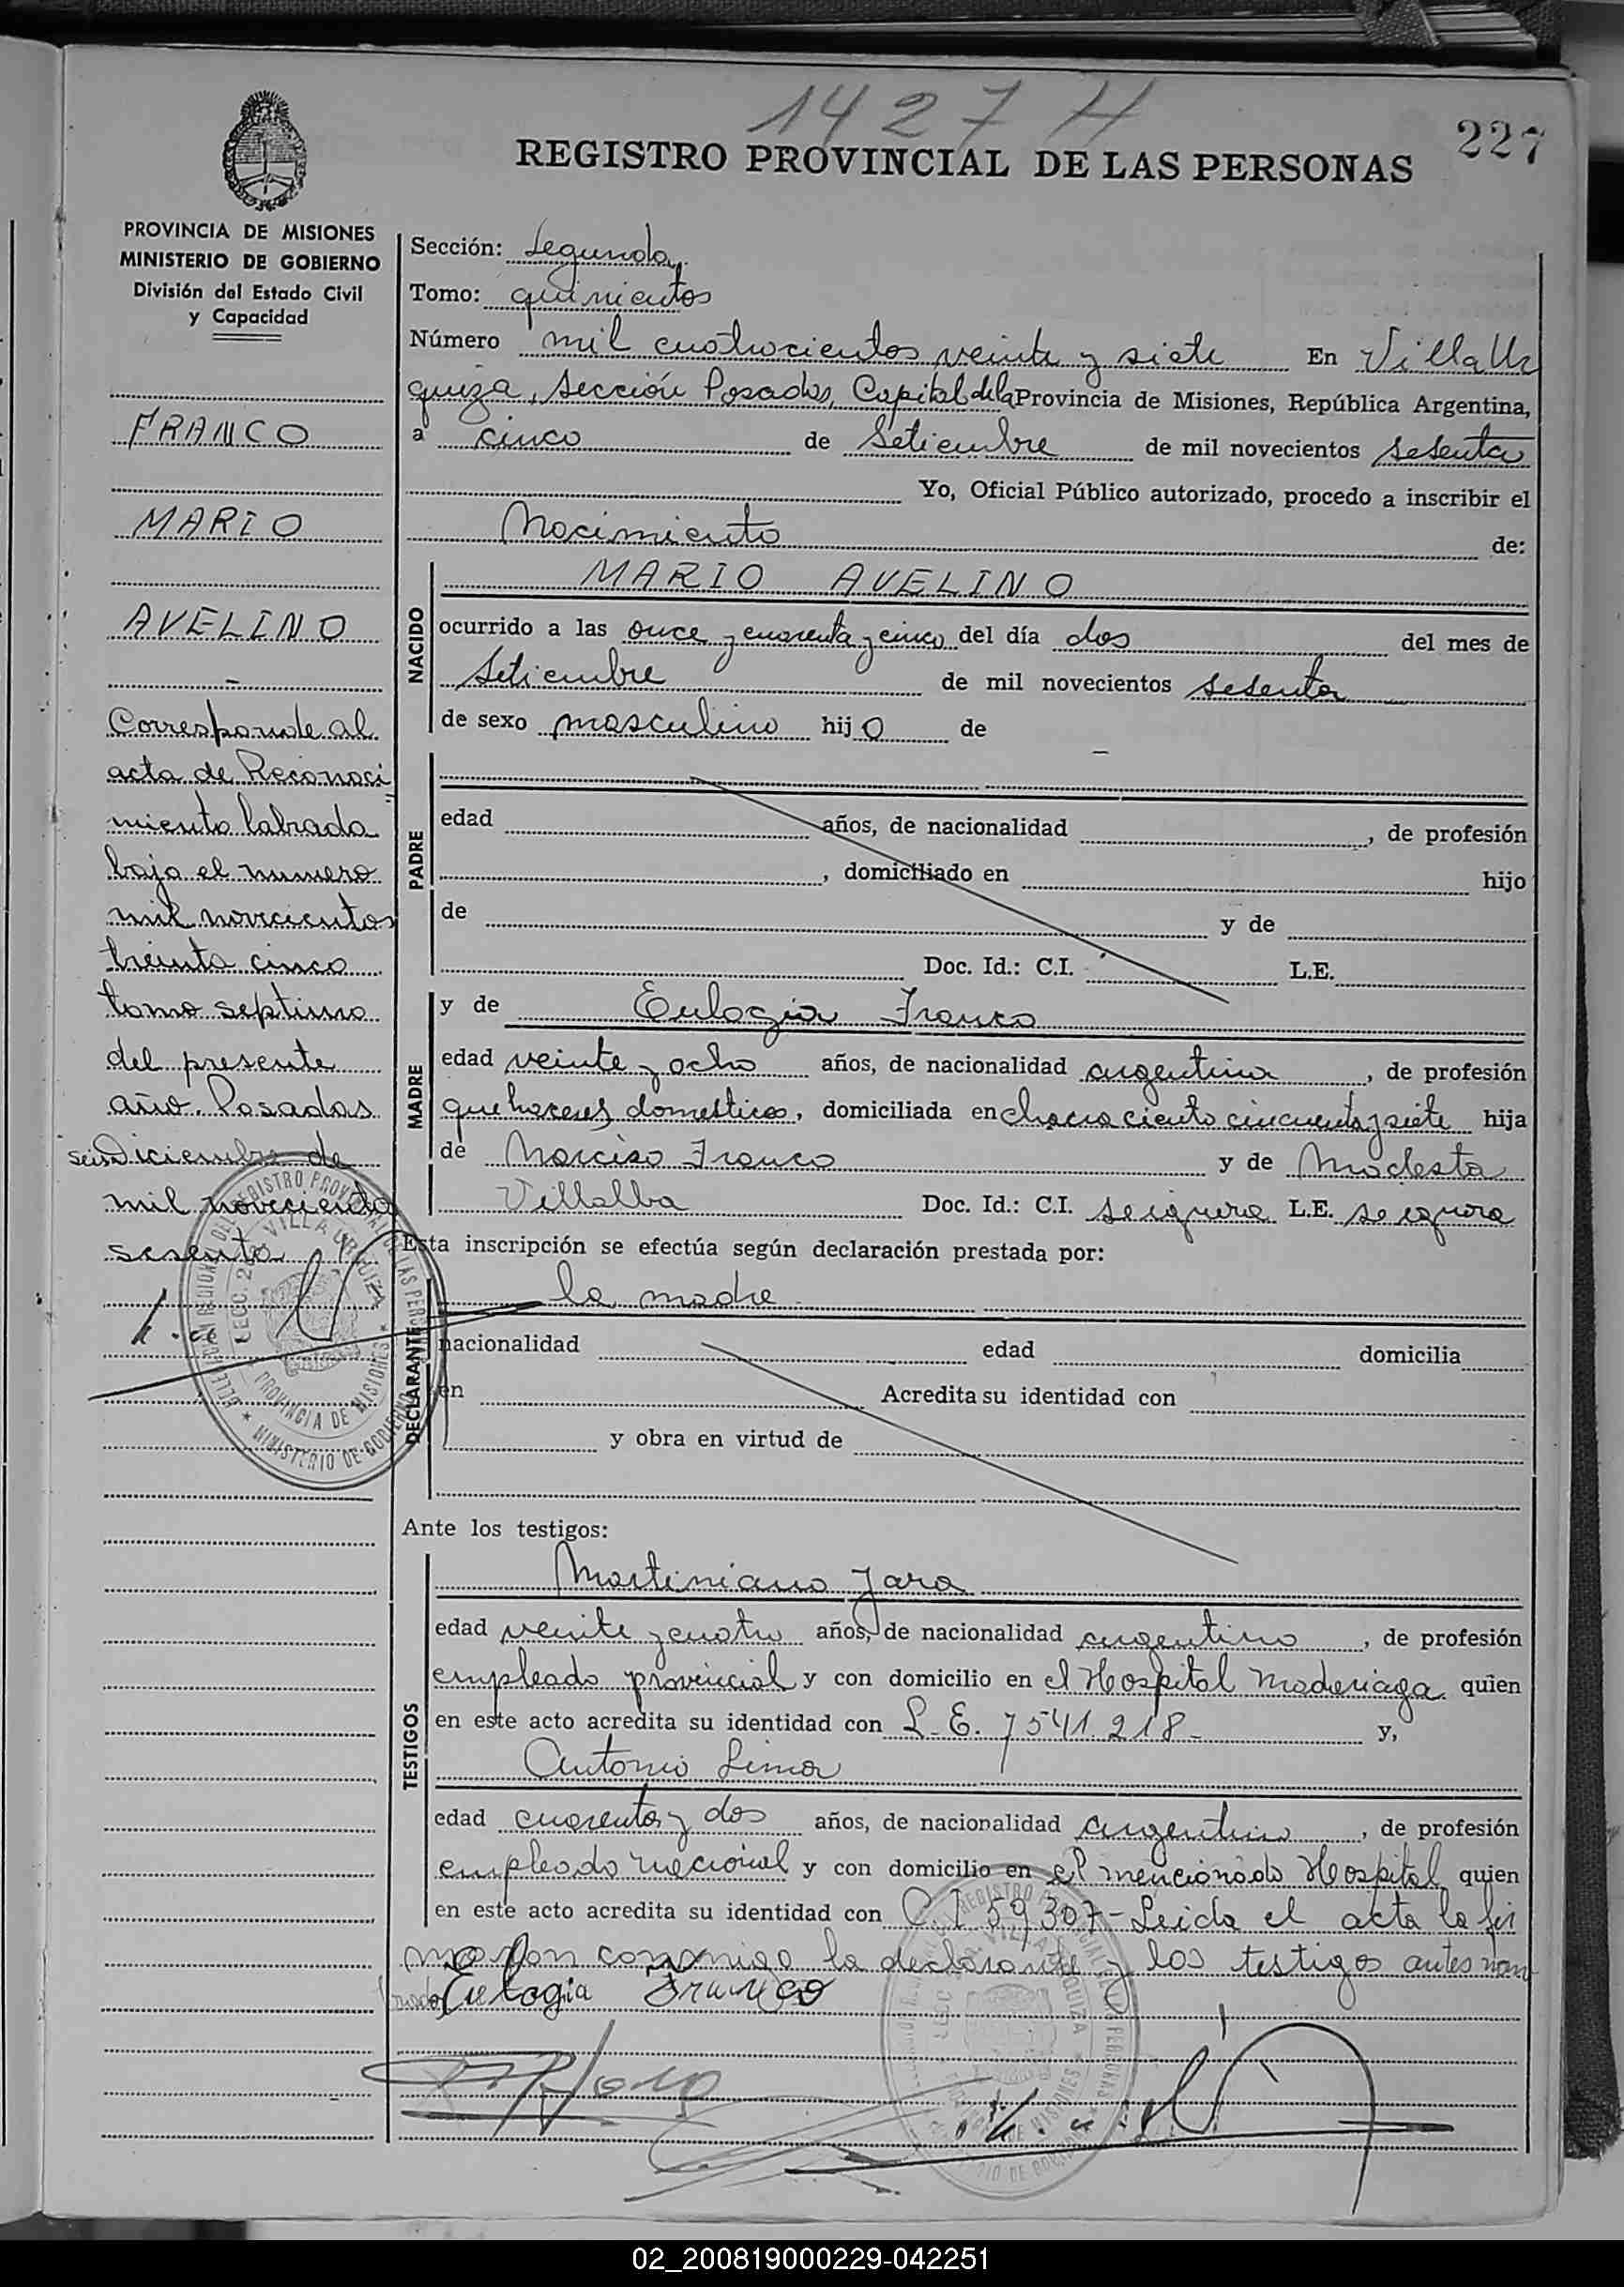 1427 H
227
REGISTRO PROVINCIAL DE LAS PERSONAS
PROVINCIA DE MISIONES
MINISTERIO DE GOBIERNO
División del Estado Civil
y Capacidad
FRANCO
MARIO
AVELINO
Corresponde al
acta de Reconoci
miento labrada
bajo el numero
mil novecientos
treinta cinco
tomo septimo
del presente
año. Posadas
seis Diciembre de
mil novecientos
sesenta
Sección: Segunda
Tomo: quinientos
Número mil cuatrocientos veinte y siete En Villa Ur
quiza, Sección Posadas, Capital de la Provincia de Misiones, República Argentina,
a cinco de Setiembre de mil novecientos sesenta
Yo, Oficial Público autorizado, procedo a inscribir el
Nacimiento de:
NACIDO
MARIO AVELINO
ocurrido a las once y cuarenta y cinco del día dos del mes de
Setiembre de mil novecientos sesenta
de sexo masculino hijo de
PADRE
edad años, de nacionalidad , de profesión
, domiciliado en hijo
de y de
Doc. Id.: C.I. L.E.
MADRE
y de Eulogia Franco
edad veinte y ocho años, de nacionalidad argentina, de profesión
quehaceres domesticos, domiciliada en chacra ciento cincuenta y siete hija
de Narciso Franco y de Modesta
Villalba Doc. Id.: C.I. L.E.
Esta inscripción se efectúa según declaración prestada por:
DECLARANTE
la madre
nacionalidad edad domicilia
en Acredita su identidad con
y obra en virtud de
Ante los testigos:
TESTIGOS
Martiniano Jara
edad veinte y cuatro años, de nacionalidad argentino, de profesión
empleado provincial y con domicilio en el Hospital Maderiaga quien
en este acto acredita su identidad con L.E. 7541.218- y,
Antonio Lima
edad cuarenta y dos años, de nacionalidad argentino, de profesión
empleado nacional y con domicilio en el mencionado Hospital quien
en este acto acredita su identidad con C.I 59307- Leida el acta la fir
maron conmigo la declarante y los testigos antes nom
Eulogia Franco
02_200819000229-042251